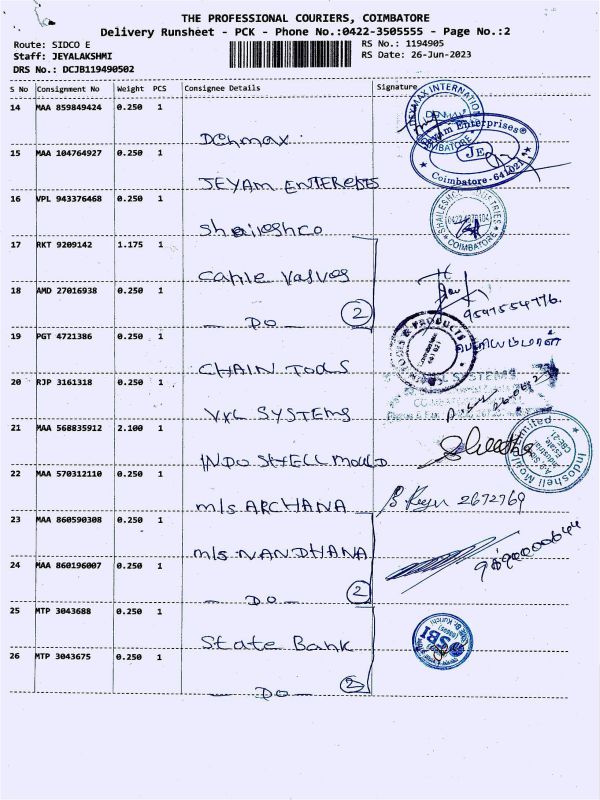 THE PROFESSIONAL COURIERS, COIMBATORE
Delivery Runsheet - PCK - Phone No.:0422-3505555 - Page No.:2
Route: SIDCO E
RS No.: 1194905
Staff: JEYALAKSHMI
RS Date: 26-Jun-2023
DRS No.: DCJB119490502
S No Consignment No Weight PCS Consignee Details Signature
14 MAA 859849424 0.250 1
DEXMAX INTERNATION
Dehmax
15 MAA 104764927 0.250 1
Jeyam Enterprises®
JE
COIMBATORE
Coimbatore - 641021
JEYAM ENTERPRISES
16 VPL 943376468 0.250 1
SHAILESHCO INDUSTRIES
COIMBATORE
Shaileshco
17 RKT 9209142 1.175 1
Cable Valves
18 AMD 27016938 0.250 1
9597554776.
— DO — 2
19 PGT 4721386 0.250 1
TOOLS & PRODUCTS
CHAIN TOOLS
20 RJP 3161318 0.250 1
SYSTEMS
VXL SYSTEMS
21 MAA 568835912 2.100 1
Indoshell Mould Limited
INDO SHELL MOULD
22 MAA 570312110 0.250 1
M/s ARCHANA
2672769
23 MAA 860590308 0.250 1
M/s NANDHANA
24 MAA 860196007 0.250 1
— DO — 2
25 MTP 3043688 0.250 1
SBI
State Bank
26 MTP 3043675 0.250 1
— DO — 2